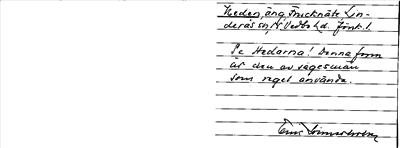 Heden, äng Frucknäts Lin-
derås sn, N. Vedbo hd. Jönk. l.
Se Hedarna! Denna form
är den av sagesmän
som regel använda.